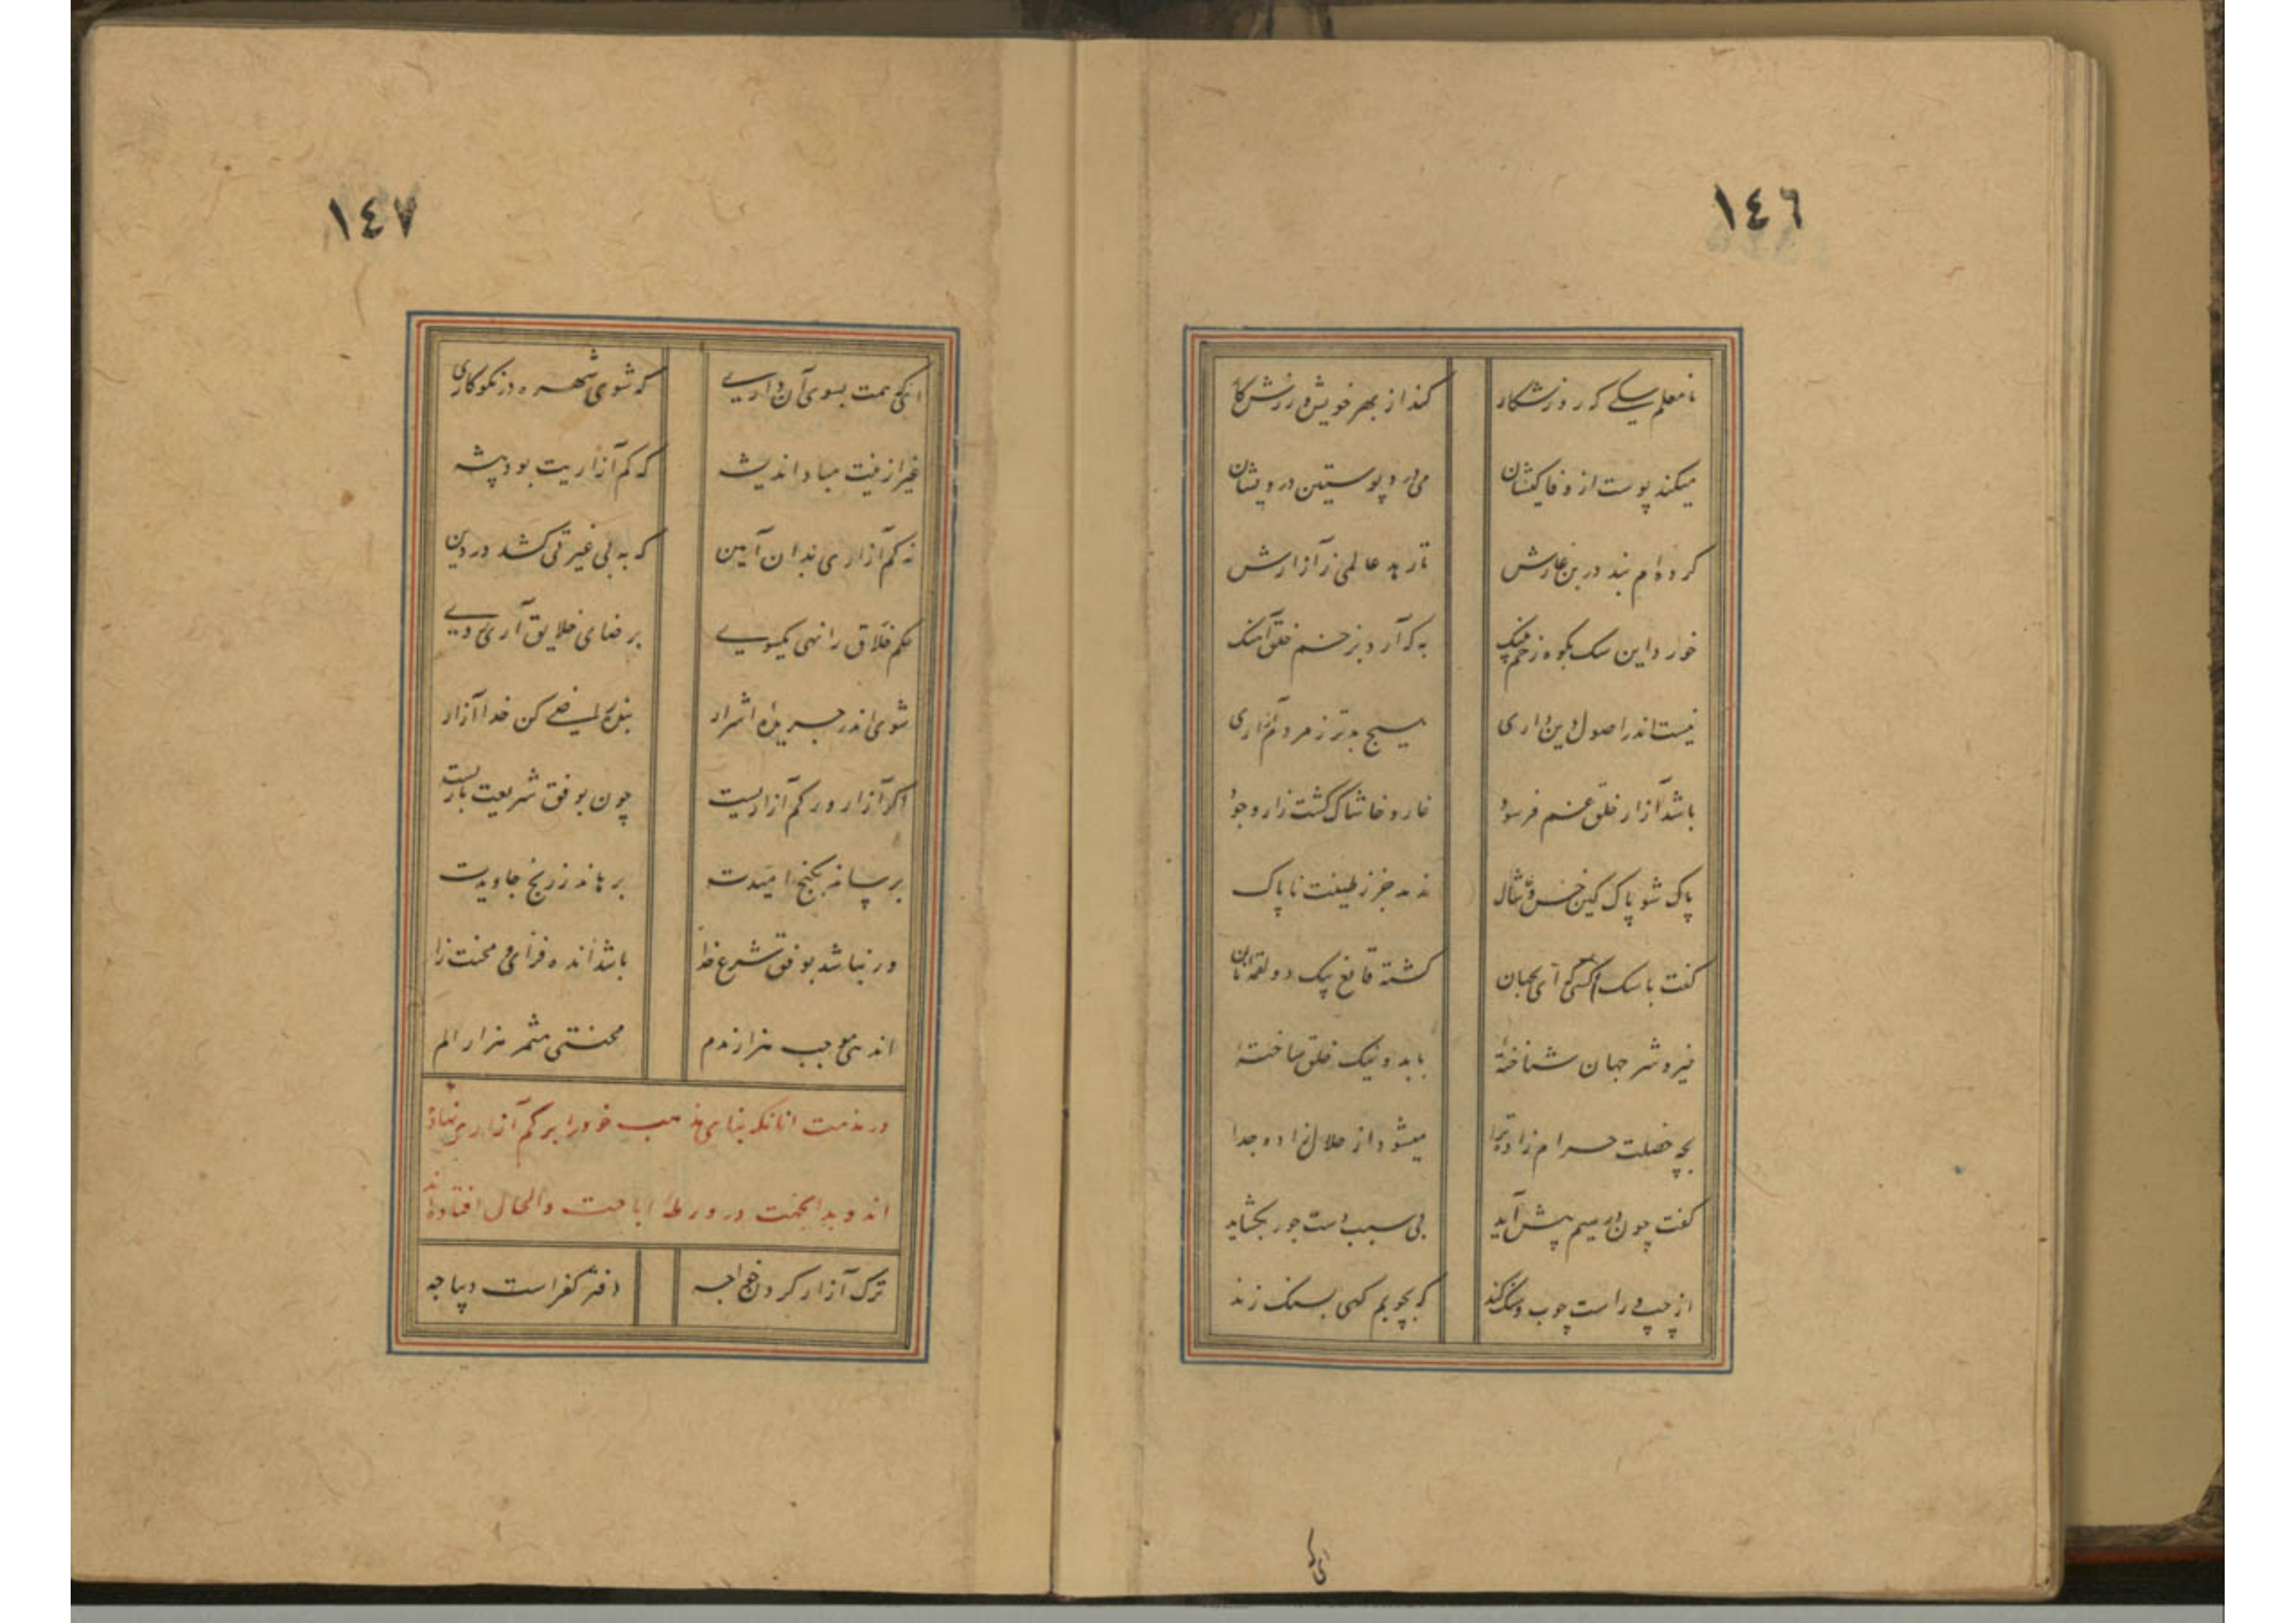 ١٤٦
نامعلم سکی که روز شکار
کند از بهر خویش ورزش کار
میکند پوست از وفاکیشان
می درد پوستین درویشان
کرده‌ام بند در بن غارش
تا رهد عالمی ز آزارش
خورد این سک بکوه زخم پلنک
به که آرد بزخم خلق آهنک
نیست اندر اصول دین داری
هیچ بدتر ز مردم آزاری
باشد آزار خلق غم فرسود
خار و خاشاک کشت زار وجود
پاک شو پاک کین خس و خاشاک
ندمد جز ز طینت ناپاک
کفت با سک کسی که ای بجهان
کشته قانع بیک دو لقمه نان
خیر و شر جهان شناخته
با بد و نیک خلق ساخته
بچه خصلت حرام زاده ترا
میشود از حلال زاده جدا
کفت چون در رسیم پیش آید
بی سبب دست جور بکشاید
از چپ و راست چوب و سنک کند
که بچوبم کهی بسنک زند
ای که
١٤٧
ای که همت بسوی آن داری
که شوی شهره در نکوکاری
غیر ازینت مباد اندیشه
که کم آزاریت بود پیشه
نه کم آزاری بدان آیین
که به بی غیرتی کشد در دین
حکم خلاق را نهی یکسوی
بر رضای خلایق آری روی
شوی اندر جریده اشرار
خلق راضی کن خدا آزار
اکر آزار ور کم آزاریست
چون بوفق شریعت باریست
برساند بکنج امیدت
برهاند ز رنج جاویدت
ور نباشد بوفق شرع خدا
باشد اندوه فزای و محنت زا
اندهی موجب هزار ندم
محنتی مثمر هزار الم
در مذمت انانکه بنای مذهب خود را بر کم آزاری نهاده
اند و بدانجهت در ورطه اباحت والحال افتاده‌اند
ترک آزار کردن خواجه
دفتر کفر است دیباجه